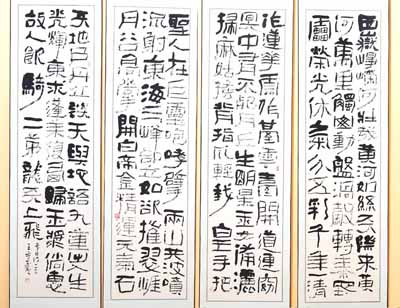 西嶽崢嶸何壯哉黃河如絲天際來黃
河萬里觸山動盤渦轂轉秦地
雷榮光休氣紛五彩千年一清
聖人在巨靈咆哮擘兩山洪波噴
流射東海三峰却立如欲摧翠崖
丹谷高掌開白帝金精運元氣石
作蓮花雲作臺雲臺閣道連窈
冥中有不死丹丘生明星玉女備灑
掃麻姑搔背指爪輕我皇手把
天地戶丹丘談天與天語九重出入生
光輝東求蓬萊復西歸玉漿倘惠
故人飲騎二茅龍天上飛